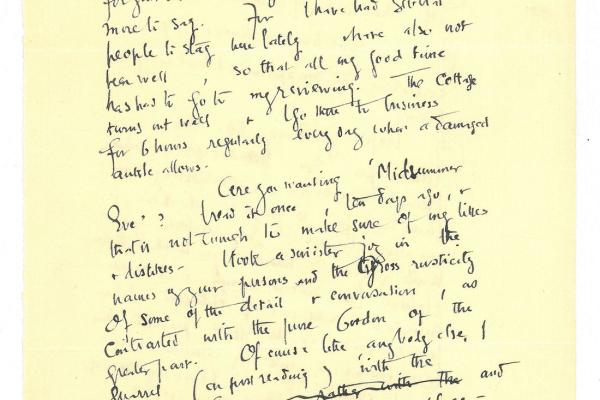 more to say. For I have had several
people to stay here lately & have also not
been well, so that all my good time
has had to go to my reviewing. The Cottage
turns out well & I go there to business
for 6 hours regularly every day when a damaged
ankle allows.
Are you wanting 'Midsummer
Eve'? I read it once, ten days ago, &
that is not enough to make sure of my likes
& dislikes. I took a sinister joy in the
names of your persons and the gross rusticity
of some of the detail & conversation, as
contrasted with the pure Gordon of the
greater part. Of course like anybody else, I
quarrel (on first reading) with the
rather with the and